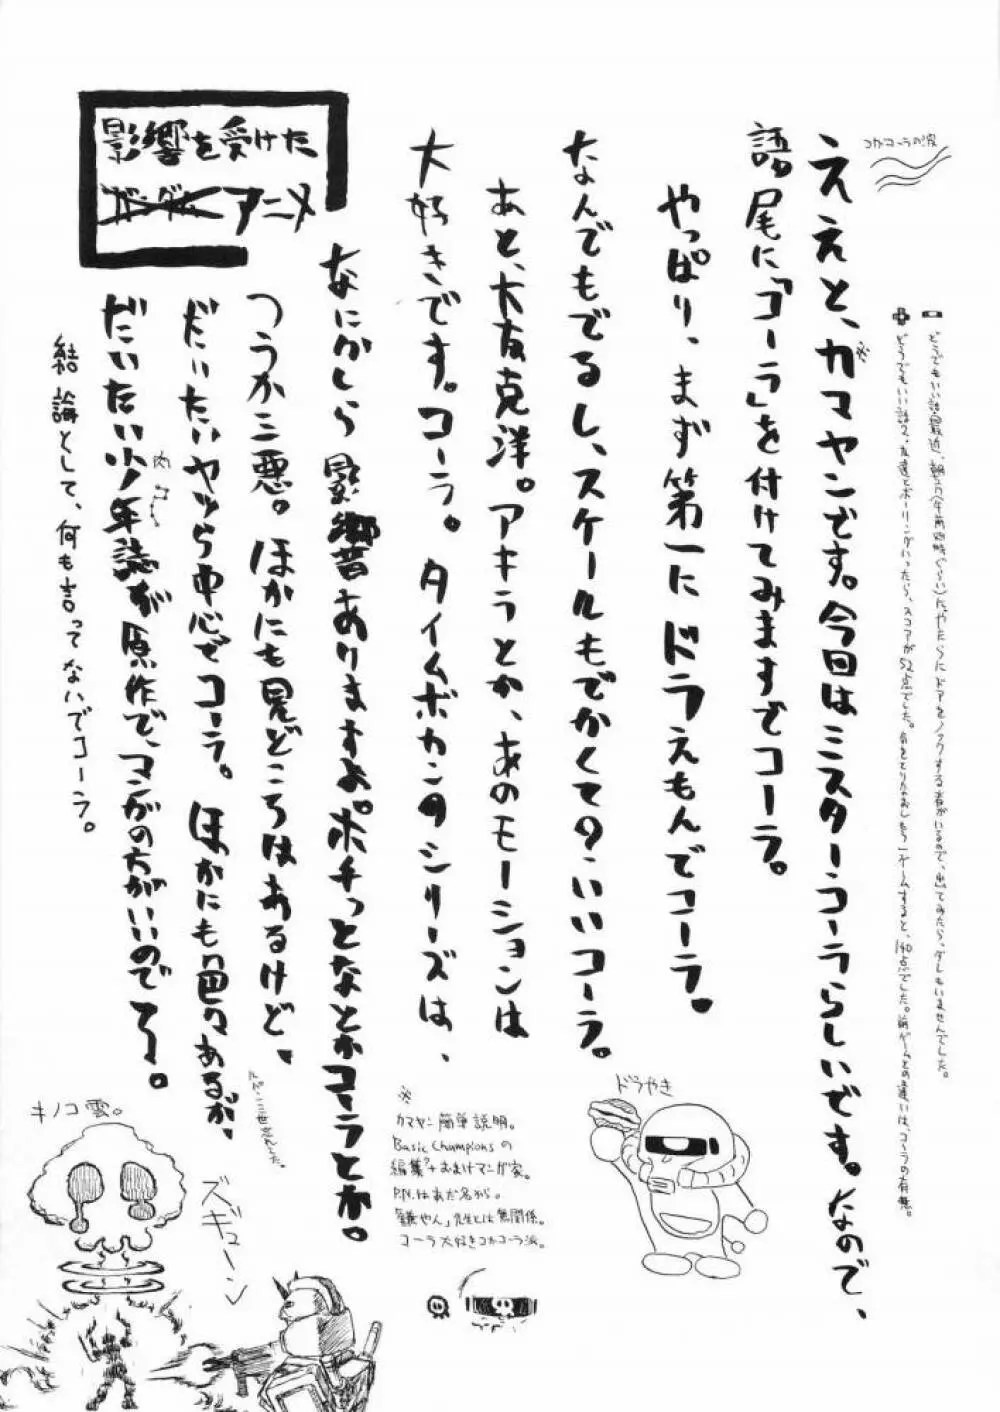 コカコーラの波
どうでもいい話、最近、朝方(午前四時ぐらい)にやたらにドアをノックする者がいるので、出てみたら、ダレもいませんでした。
どうでもいい話2、友達とボーリングいったら、スコアが52点でした。「気をとりなおしもう1ゲームすると、140点でした。前ゲームとの違いは、コーラの有無。
ええと、ガマヤンです。今回はミスターコーラらしいです。なので、
語尾に「コーラ」を付けてみますでコーラ。
やっぱり、まず第一にドラえもんでコーラ。
なんでもでるし、スケールもでかくて○いいコーラ。
あと、大友克洋。アキラとか、あのモーションは
大好きです。コーラ。タイムボカンのシリーズは、
影響を受けた
ガンダム アニメ
なにかしら影響ありますよ。ポチっとなとかコーラとか。
つうか三悪。ほかにも見どころはあるけど、
ドだいたいヤツら中心でコーラ。ほかにも色々あるが、
ルパン三世忘れてた。
だいたい少年誌が原作で、マンガの方がいいのでラー。
結論として、何も言ってないでコーラ。
※
カマヤン簡単説明。
Basic Championsの
編集?+おまけマンガ家。
P.N.はあだ名から。
「鎌やん」先生とは無関係。
コーラ大好きコカコーラ派。
ドラやき
キノコ雲。
ズギューン